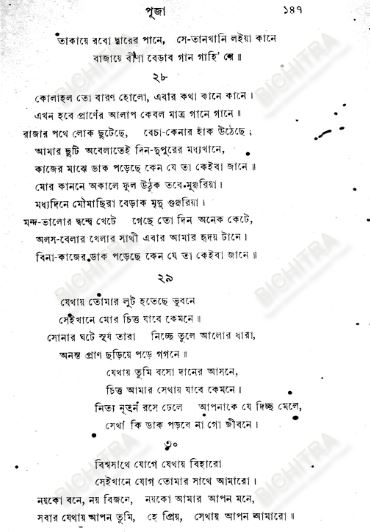 পূজা ১৪৭
তাকায়ে রবো দ্বারের পানে, সে-তানখানি লইয়া কানে
বাজায়ে বীণা বেড়াব গান গাহি' যে॥
২৮
কোলাহল তো বারণ হোলো, এবার কথা কানে কানে।
এখন হবে প্রাণের আলাপ কেবল মাত্র গানে গানে॥
রাজার পথে লোক ছুটেছে, বেচা-কেনার হাঁক উঠেছে;
আমার ছুটি অবেলাতেই দিন-দুপুরের মধ্যখানে,
কাজের মাঝে ডাক পড়েছে কেন যে তা কেইবা জানে॥
মোর কাননে অকালে ফুল উঠুক তবে মুঞ্জরিয়া।
মধ্যদিনে মৌমাছিরা বেড়াক মৃদু গুঞ্জরিয়া।
মন্দ-ভালোর দ্বন্দ্বে খেটে গেছে তো দিন অনেক কেটে,
অলস-বেলার খেলার সাথী এবার আমার হৃদয় টানে।
বিনা-কাজের ডাক পড়েছে কেন যে তা কেইবা জানে॥
২৯
যেথায় তোমার লুট হতেছে ভুবনে
সেইখানে মোর চিত্ত যাবে কেমনে॥
সোনার ঘটে সূর্য তারা নিচ্ছে তুলে আলোর ধারা,
অনন্ত প্রাণ ছড়িয়ে পড়ে গগনে॥
যেথায় তুমি বসো দানের আসনে,
চিত্ত আমার সেথায় যাবে কেমনে।
নিত্য নূতন রসে ঢেলে আপনাকে যে দিচ্ছ মেলে,
সেথা কি ডাক পড়বে না গো জীবনে।
৩০
বিশ্বসাথে যোগে যেথায় বিহারো
সেইখানে যোগ তোমার সাথে আমারো।
নয়কো বনে, নয় বিজনে, নয়কো আমার আপন মনে,
সবার যেথায় আপন তুমি, হে প্রিয়, সেথায় আপন আমারো॥
BICHITRA